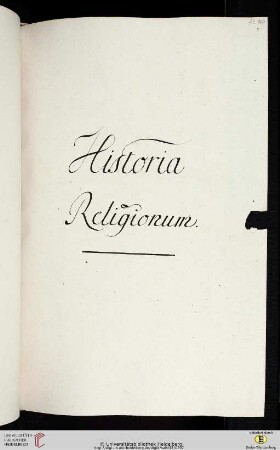 Historia
Religionum.
UNIVERSITÄTS-
BIBLIOTHEK
HEIDELBERG
© Universitätsbibliothek Heidelberg